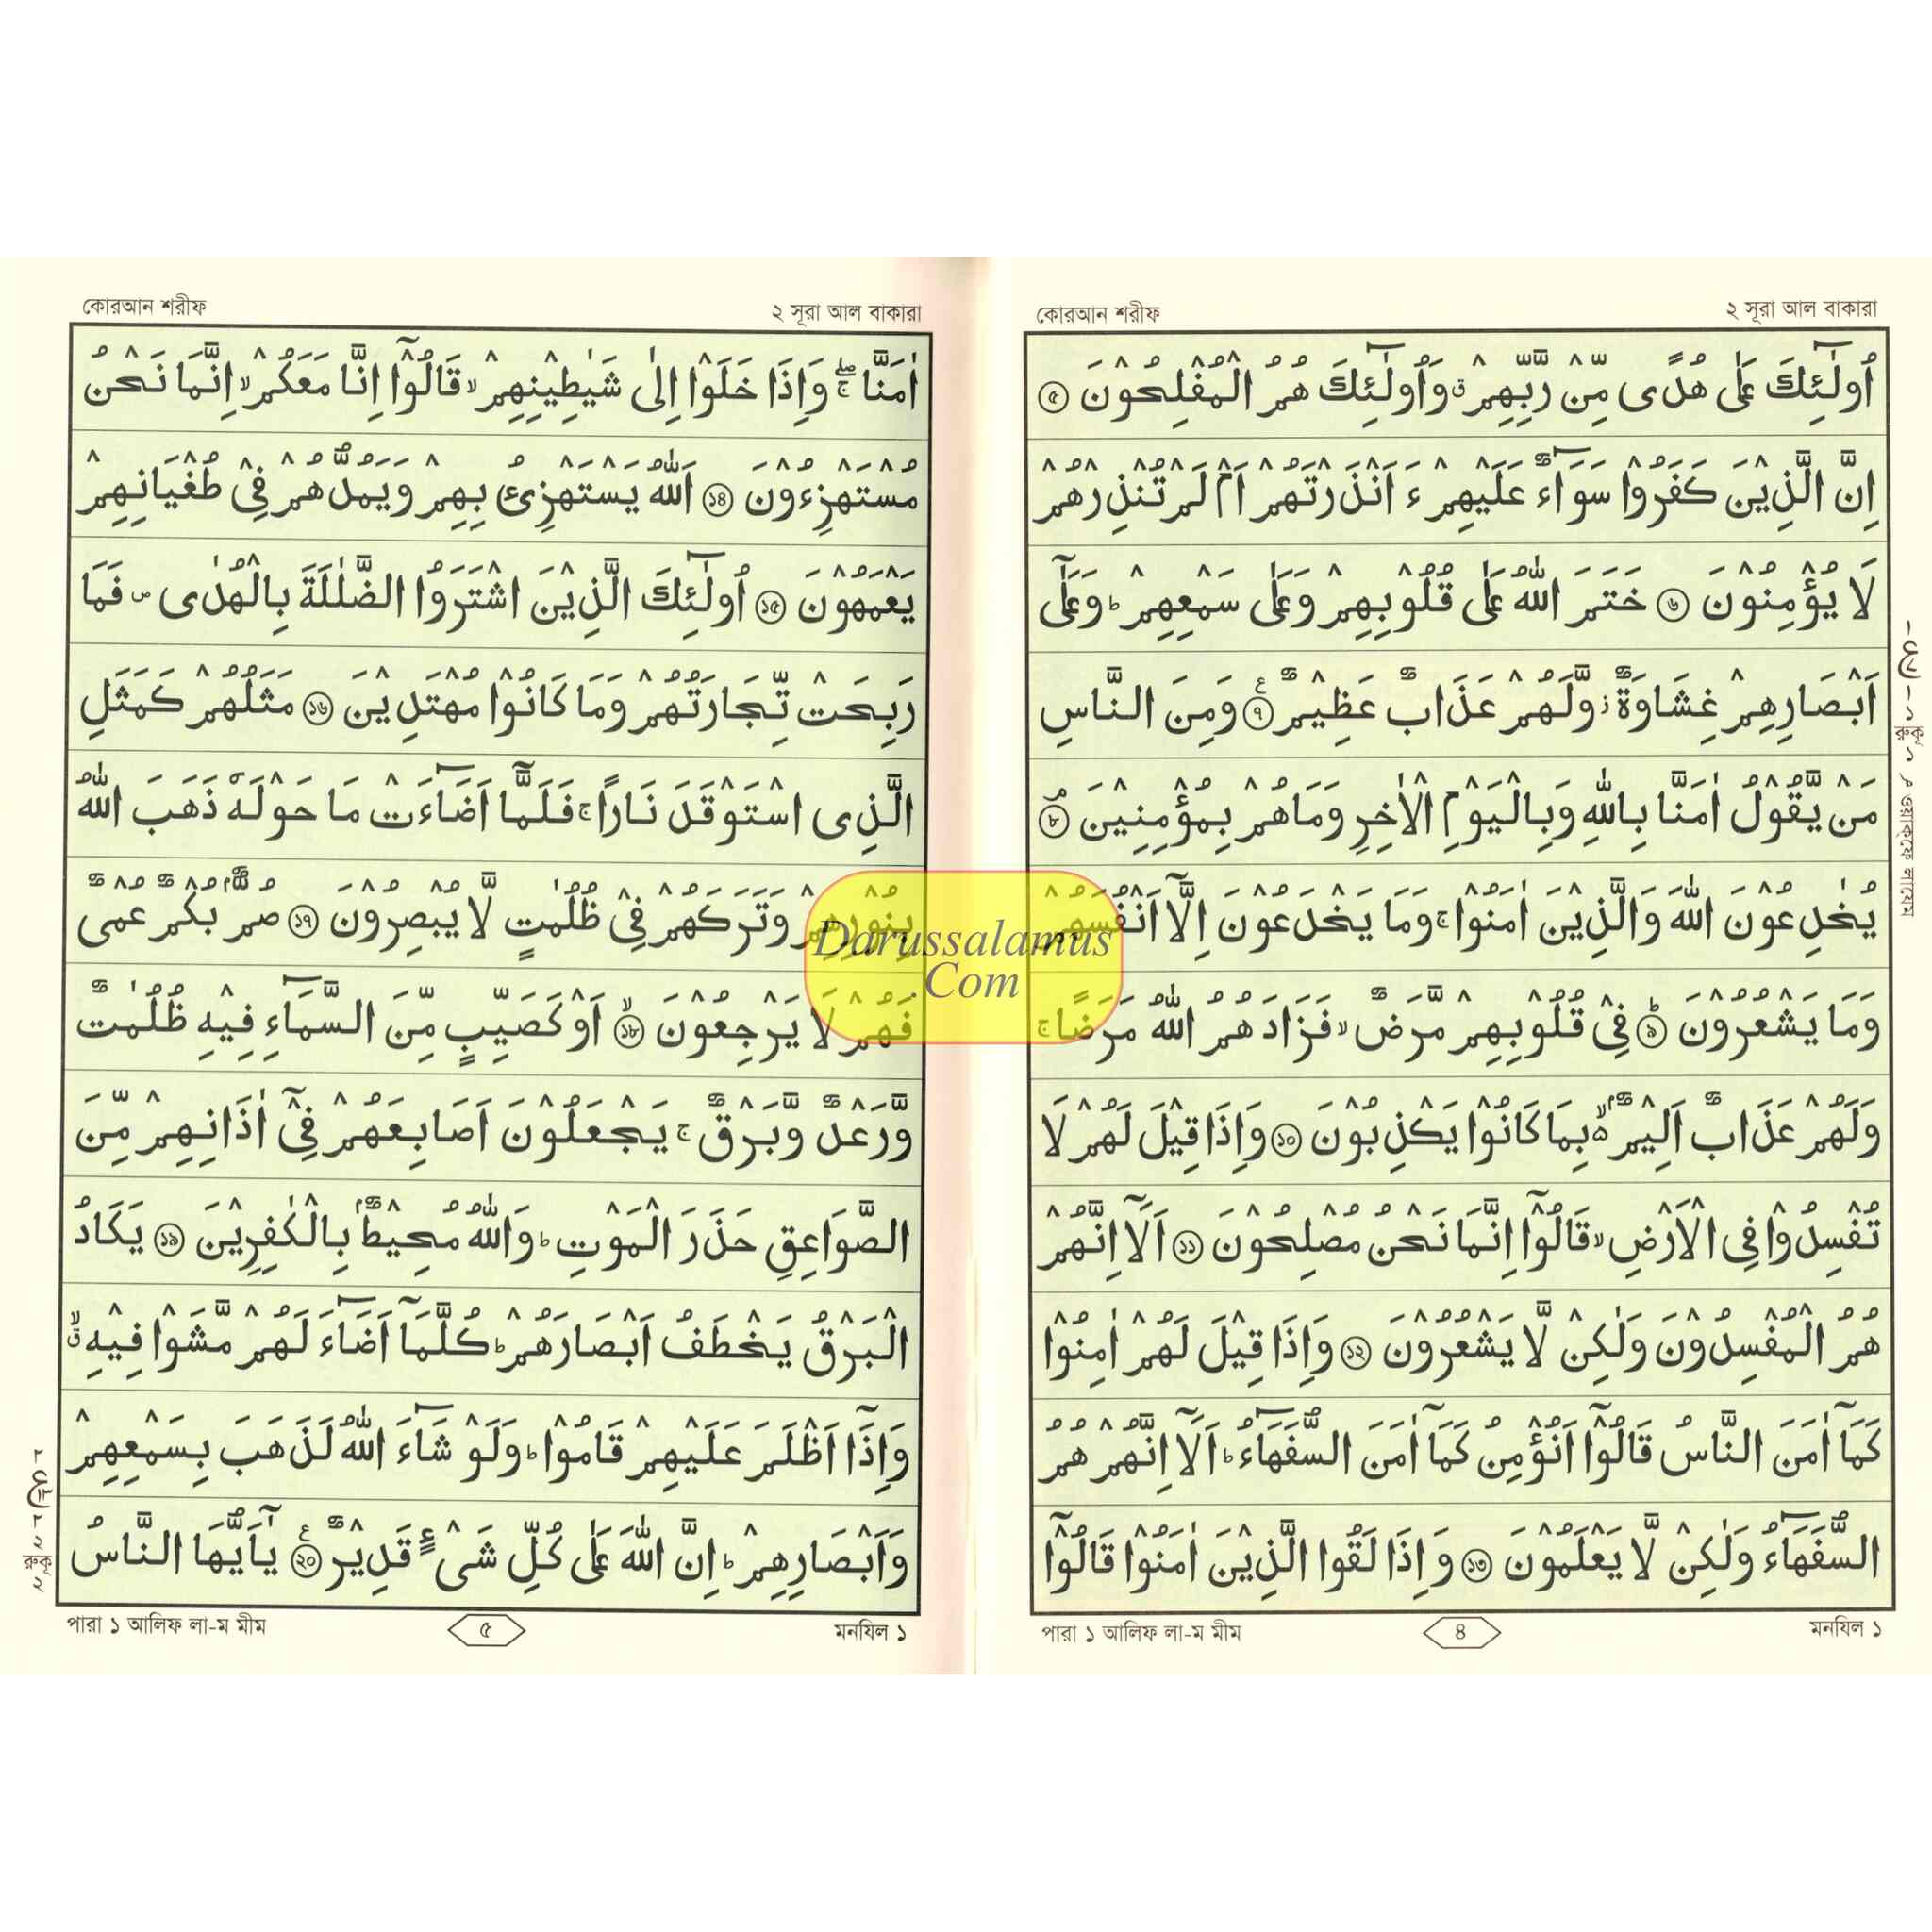 কোরআন শরীফ
২ সূরা আল বাকারা
اُولٰٓئِكَ عَلٰى هُدًى مِّنْ رَّبِّهِمْ ۗ وَاُولٰٓئِكَ هُمُ الْمُفْلِحُوْنَ ৫
اِنَّ الَّذِيْنَ كَفَرُوْا سَوَآءٌ عَلَيْهِمْ ءَاَنْذَرْتَهُمْ اَمْ لَمْ تُنْذِرْهُمْ
لَا يُؤْمِنُوْنَ ৬ خَتَمَ اللّٰهُ عَلٰى قُلُوْبِهِمْ وَعَلٰى سَمْعِهِمْ ؕ وَعَلٰٓى
اَبْصَارِهِمْ غِشَاوَةٌ ز وَّلَهُمْ عَذَابٌ عَظِيْمٌ ৭ وَمِنَ النَّاسِ
مَنْ يَّقُوْلُ اٰمَنَّا بِاللّٰهِ وَبِالْيَوْمِ الْاٰخِرِ وَمَا هُمْ بِمُؤْمِنِيْنَ ৮
يُخٰدِعُوْنَ اللّٰهَ وَالَّذِيْنَ اٰمَنُوْا ۚ وَمَا يَخْدَعُوْنَ اِلَّآ اَنْفُسَهُمْ
وَمَا يَشْعُرُوْنَ ৯ فِيْ قُلُوْبِهِمْ مَّرَضٌ ۙ فَزَادَهُمُ اللّٰهُ مَرَضًا ۚ
وَلَهُمْ عَذَابٌ اَلِيْمٌ ۢ ۙ۬ بِمَا كَانُوْا يَكْذِبُوْنَ ১০ وَاِذَا قِيْلَ لَهُمْ لَا
تُفْسِدُوْا فِى الْاَرْضِ ۙ قَالُوْٓا اِنَّمَا نَحْنُ مُصْلِحُوْنَ ১১ اَلَآ اِنَّهُمْ
هُمُ الْمُفْسِدُوْنَ وَلٰكِنْ لَّا يَشْعُرُوْنَ ১২ وَاِذَا قِيْلَ لَهُمْ اٰمِنُوْا
كَمَآ اٰمَنَ النَّاسُ قَالُوْٓا اَنُؤْمِنُ كَمَآ اٰمَنَ السُّفَهَآءُ ؕ اَلَآ اِنَّهُمْ هُمُ
السُّفَهَآءُ وَلٰكِنْ لَّا يَعْلَمُوْنَ ১৩ وَاِذَا لَقُوا الَّذِيْنَ اٰمَنُوْا قَالُوْٓا
পারা ১ আলিফ লা-ম মীম
৪
মনযিল ১
রুকূ
ওয়াক্‌ফে লাযেম
কোরআন শরীফ
২ সূরা আল বাকারা
اٰمَنَّا ۖۚ وَاِذَا خَلَوْا اِلٰى شَيٰطِيْنِهِمْ ۙ قَالُوْٓا اِنَّا مَعَكُمْ ۙ اِنَّمَا نَحْنُ
مُسْتَهْزِءُوْنَ ১৪ اَللّٰهُ يَسْتَهْزِئُ بِهِمْ وَيَمُدُّهُمْ فِيْ طُغْيَانِهِمْ
يَعْمَهُوْنَ ১৫ اُولٰٓئِكَ الَّذِيْنَ اشْتَرَوُا الضَّلٰلَةَ بِالْهُدٰى ۪ فَمَا
رَبِحَتْ تِّجَارَتُهُمْ وَمَا كَانُوْا مُهْتَدِيْنَ ১৬ مَثَلُهُمْ كَمَثَلِ
الَّذِى اسْتَوْقَدَ نَارًا ۚ فَلَمَّآ اَضَآءَتْ مَا حَوْلَهٗ ذَهَبَ اللّٰهُ
بِنُوْرِهِمْ وَتَرَكَهُمْ فِيْ ظُلُمٰتٍ لَّا يُبْصِرُوْنَ ১৭ صُمٌّ ۢ بُكْمٌ عُمْيٌ
فَهُمْ لَا يَرْجِعُوْنَ ১৮ ۙ اَوْ كَصَيِّبٍ مِّنَ السَّمَآءِ فِيْهِ ظُلُمٰتٌ
وَّرَعْدٌ وَّبَرْقٌ ۚ يَجْعَلُوْنَ اَصَابِعَهُمْ فِيْٓ اٰذَانِهِمْ مِّنَ
الصَّوَاعِقِ حَذَرَ الْمَوْتِ ؕ وَاللّٰهُ مُحِيْطٌ ۢ بِالْكٰفِرِيْنَ ১৯ يَكَادُ
الْبَرْقُ يَخْطَفُ اَبْصَارَهُمْ ؕ كُلَّمَآ اَضَآءَ لَهُمْ مَّشَوْا فِيْهِ ۙۗ
وَاِذَآ اَظْلَمَ عَلَيْهِمْ قَامُوْا ؕ وَلَوْ شَآءَ اللّٰهُ لَذَهَبَ بِسَمْعِهِمْ
وَاَبْصَارِهِمْ ؕ اِنَّ اللّٰهَ عَلٰى كُلِّ شَىْءٍ قَدِيْرٌ ২০ يٰٓاَيُّهَا النَّاسُ
পারা ১ আলিফ লা-ম মীম
৫
মনযিল ১
রুকূ
Darussalamus
Com